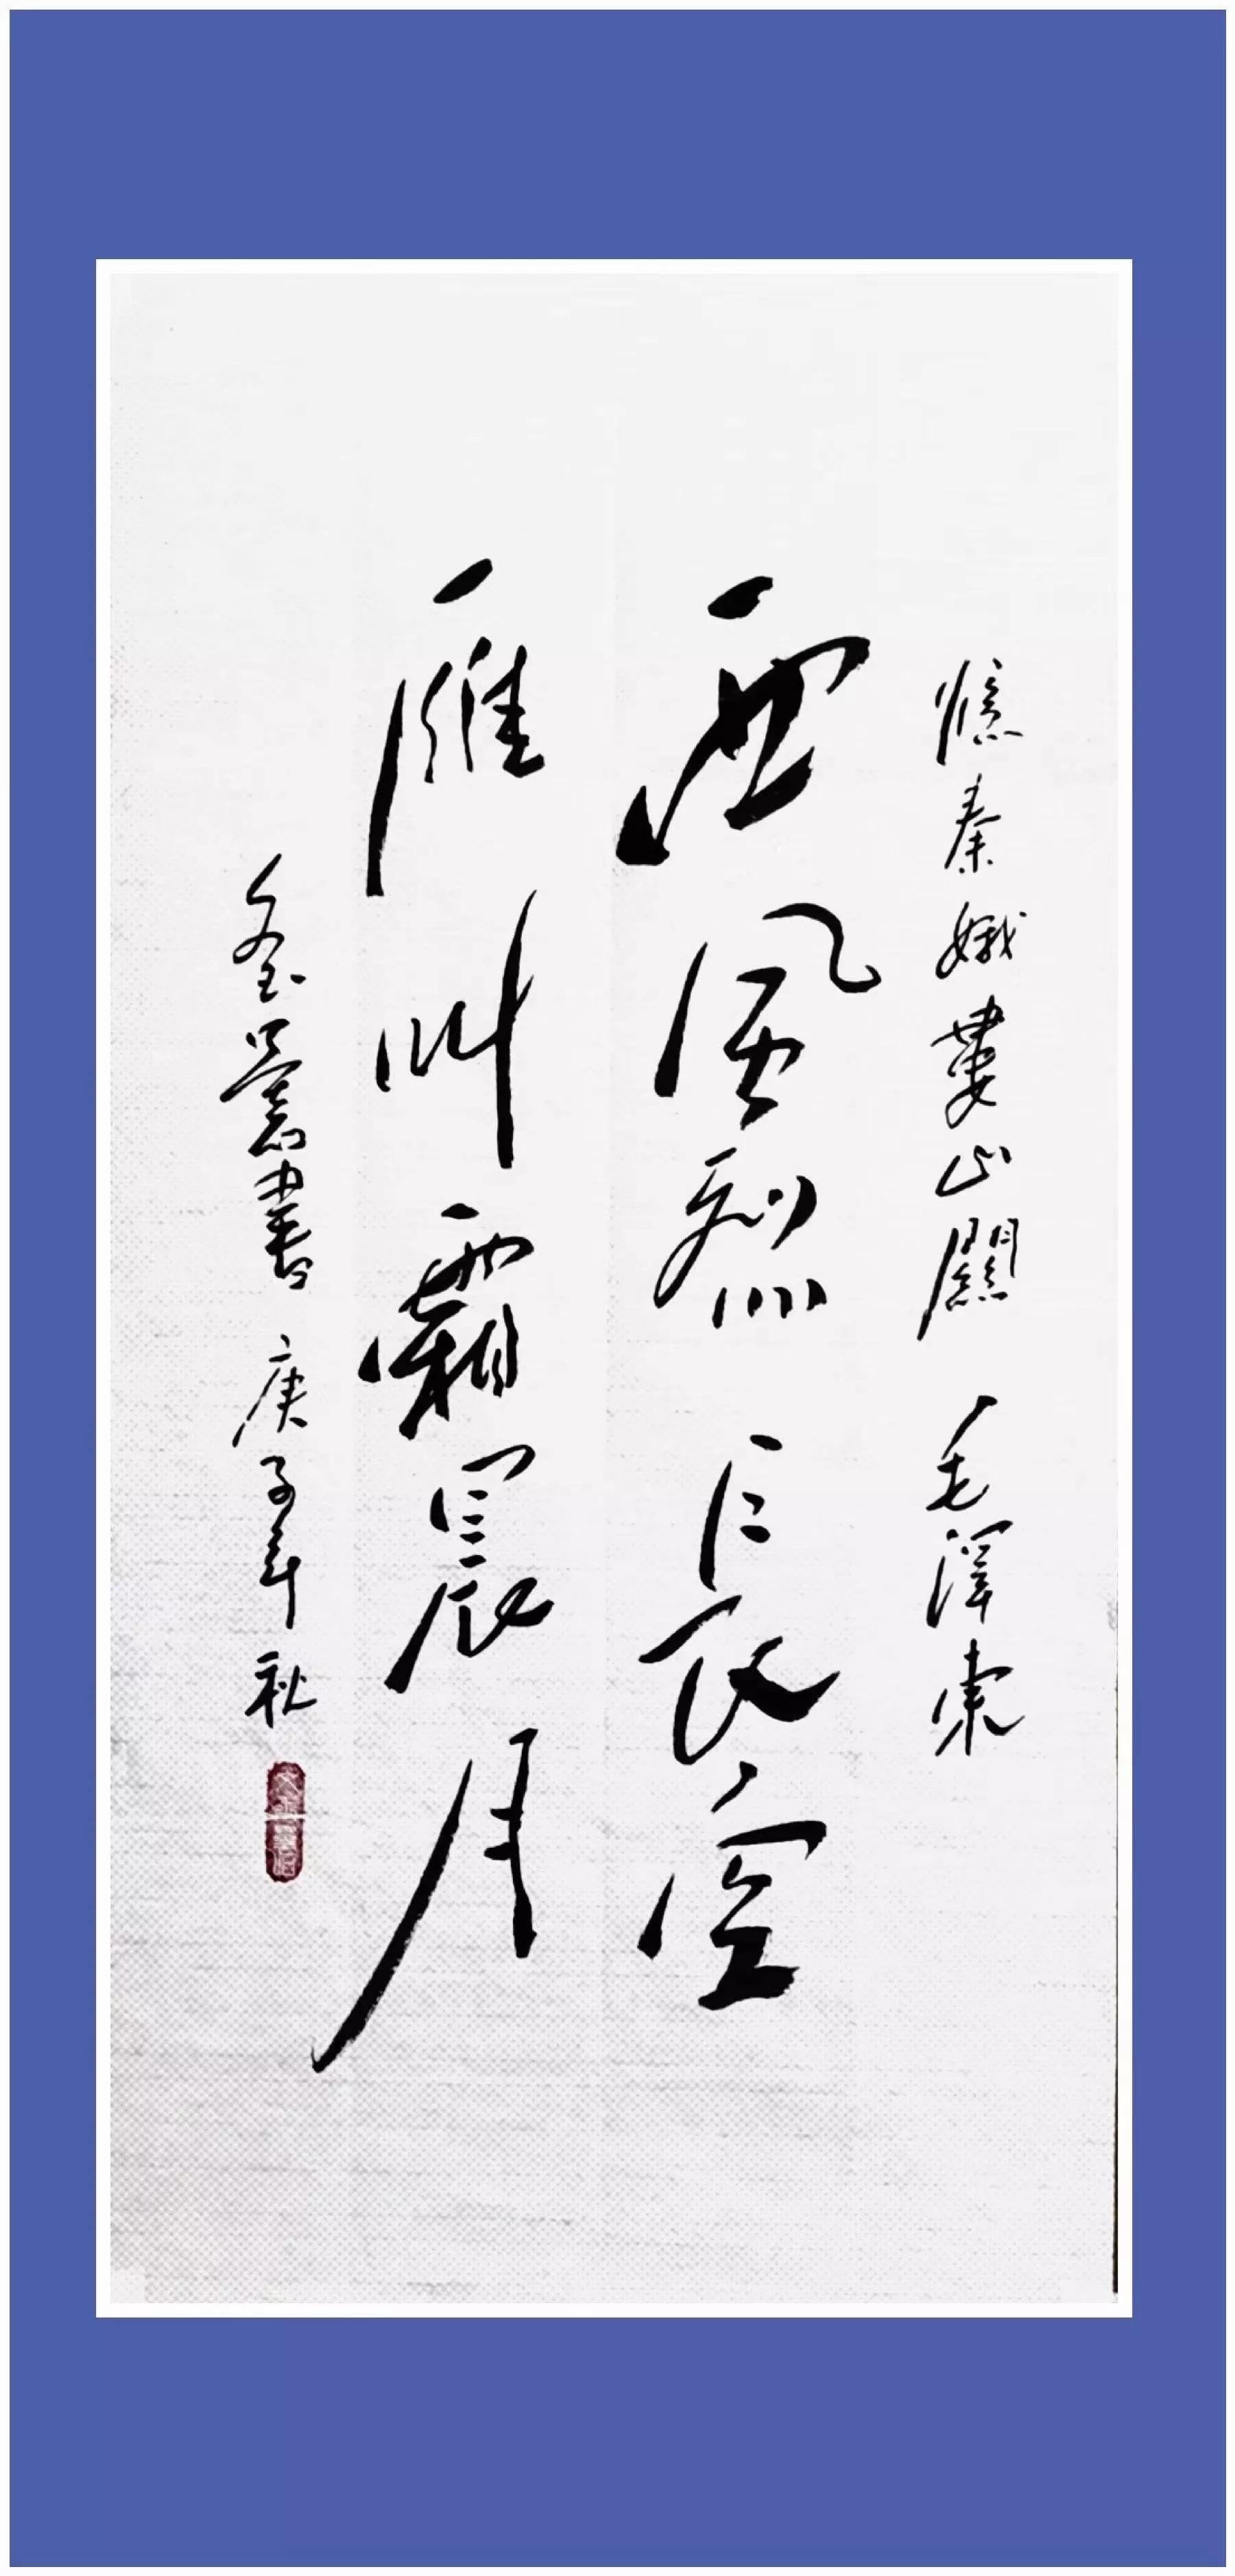 憶秦娥婁山關 毛澤東
西風烈 長空
雁叫霜晨月
書 庚子年秋